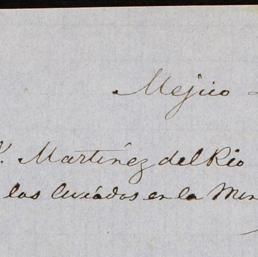 Mejico
Martinez del Rio
los Curados en la Min